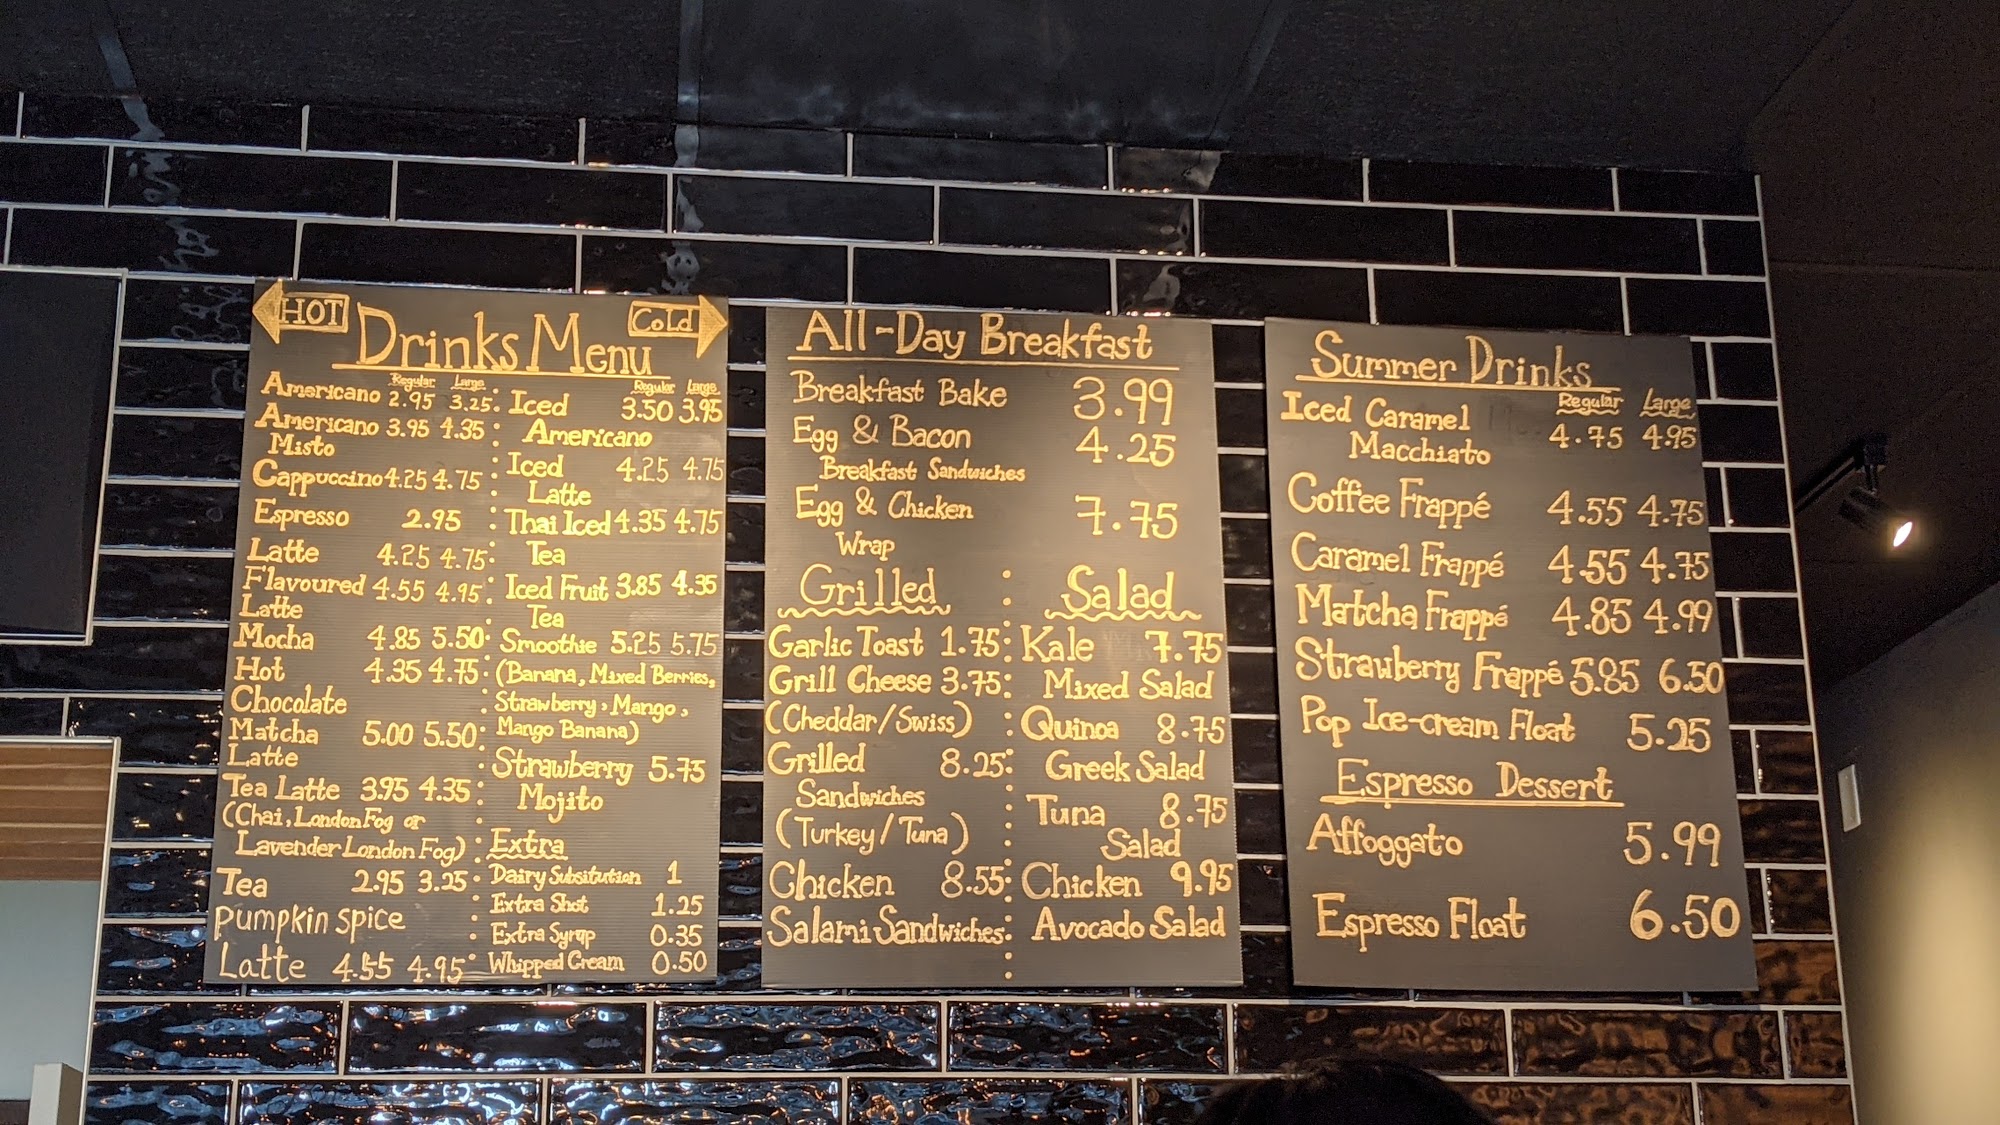 HOT
Drinks Menu
Cold
Regular Large
Americano 2.95 3.25
Americano 3.95 4.35
Misto
Cappuccino 4.25 4.75
Espresso 2.95
Latte 4.25 4.75
Flavoured 4.55 4.95
Latte
Mocha 4.85 5.50
Hot 4.35 4.75
Chocolate
Matcha 5.00 5.50
Latte
Tea Latte 3.95 4.35
(Chai, London Fog or
Lavender London Fog)
Tea 2.95 3.25
Pumpkin spice
Latte 4.55 4.95
Regular Large
Iced 3.50 3.95
Americano
Iced 4.25 4.75
Latte
Thai Iced 4.35 4.75
Tea
Iced Fruit 3.85 4.35
Tea
Smoothie 5.25 5.75
(Banana, Mixed Berries,
Strawberry, Mango,
Mango Banana)
Strawberry 5.75
Mojito
Extra
Dairy Subsitution 1
Extra Shot 1.25
Extra Syrup 0.35
Whipped Cream 0.50
All-Day Breakfast
Breakfast Bake 3.99
Egg & Bacon 4.25
Breakfast Sandwiches
Egg & Chicken 7.75
Wrap
Grilled
Garlic Toast 1.75
Grill Cheese 3.75
(Cheddar/Swiss)
Grilled 8.25
Sandwiches
(Turkey/Tuna)
Chicken 8.55
Salami Sandwiches
Salad
Kale 7.75
Mixed Salad
Quinoa 8.75
Greek Salad
Tuna 8.75
Salad
Chicken 9.95
Avocado Salad
Summer Drinks
Regular Large
Iced Caramel 4.75 4.95
Macchiato
Coffee Frappé 4.55 4.75
Caramel Frappé 4.55 4.75
Matcha Frappé 4.85 4.99
Strawberry Frappé 5.85 6.50
Pop Ice-cream Float 5.25
Espresso Dessert
Affoggato 5.99
Espresso Float 6.50